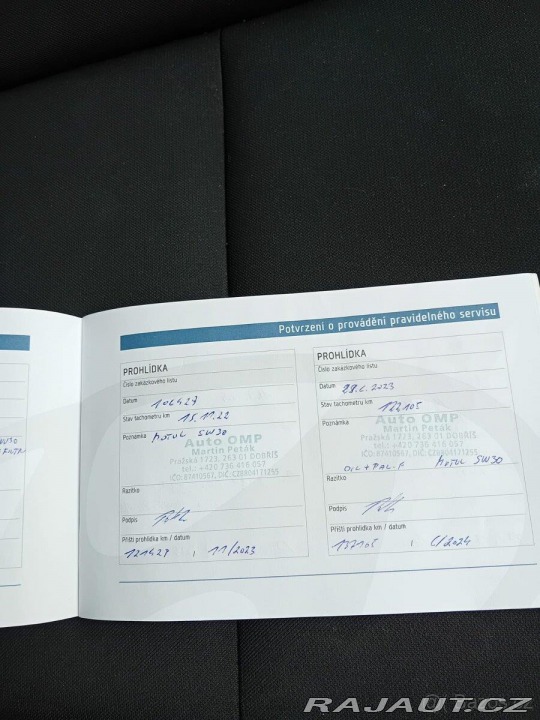 Potvrzení o provádění pravidelného servisu
PROHLÍDKA
Číslo zakázkového listu
Datum 106427
Stav tachometru km 15.11.22
Poznámka MOTUL 5W30
Auto OMP
Martin Peták
Pražská 1723, 263 01 DOBŘÍŠ
tel.: +420 736 416 057
Razítko
Podpis
Příští prohlídka km / datum
121427 11/2023
PROHLÍDKA
Číslo zakázkového listu
Datum 29.6.2023
Stav tachometru km 122105
Poznámka
Auto OMP
Martin Peták
Pražská 1723, 263 01 DOBŘÍŠ
tel.: +420 736 416 057
OIL + PAL.F MOTUL 5W30
Razítko
Podpis
Příští prohlídka km / datum
137105 6/2024
5W30
RAJAUT.CZ